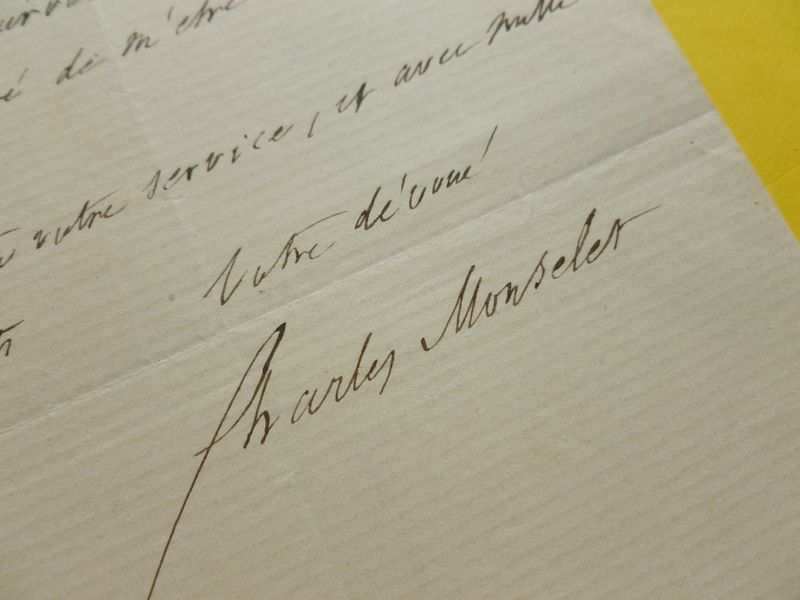 é de m'être
votre service, et avec mille
Votre dévoué
Charles Monselet